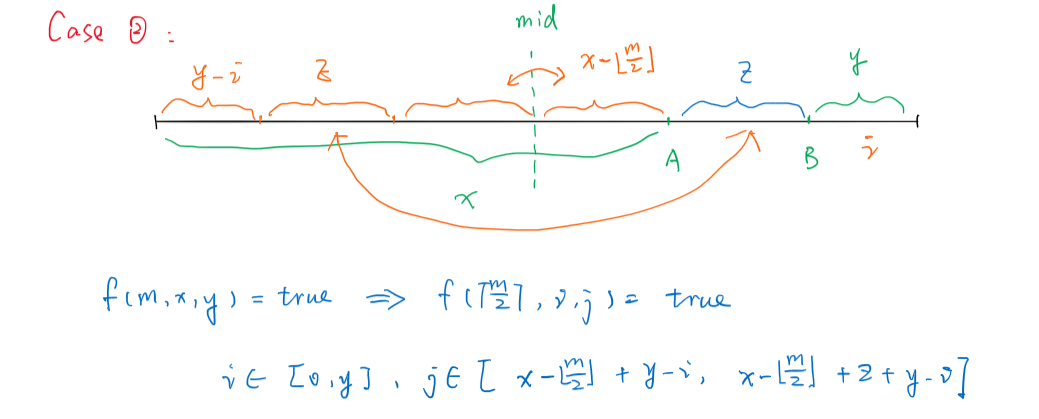 Case ② :
mid
y-i
z
x-⌊m/2⌋
z
y
A
B
i
x
f(m,x,y) = true ⇒ f(⌈m/2⌉, i,j) = true
i ∈ [0,y], j ∈ [ x-⌊m/2⌋ + y-i, x-⌊m/2⌋ + z + y-i]